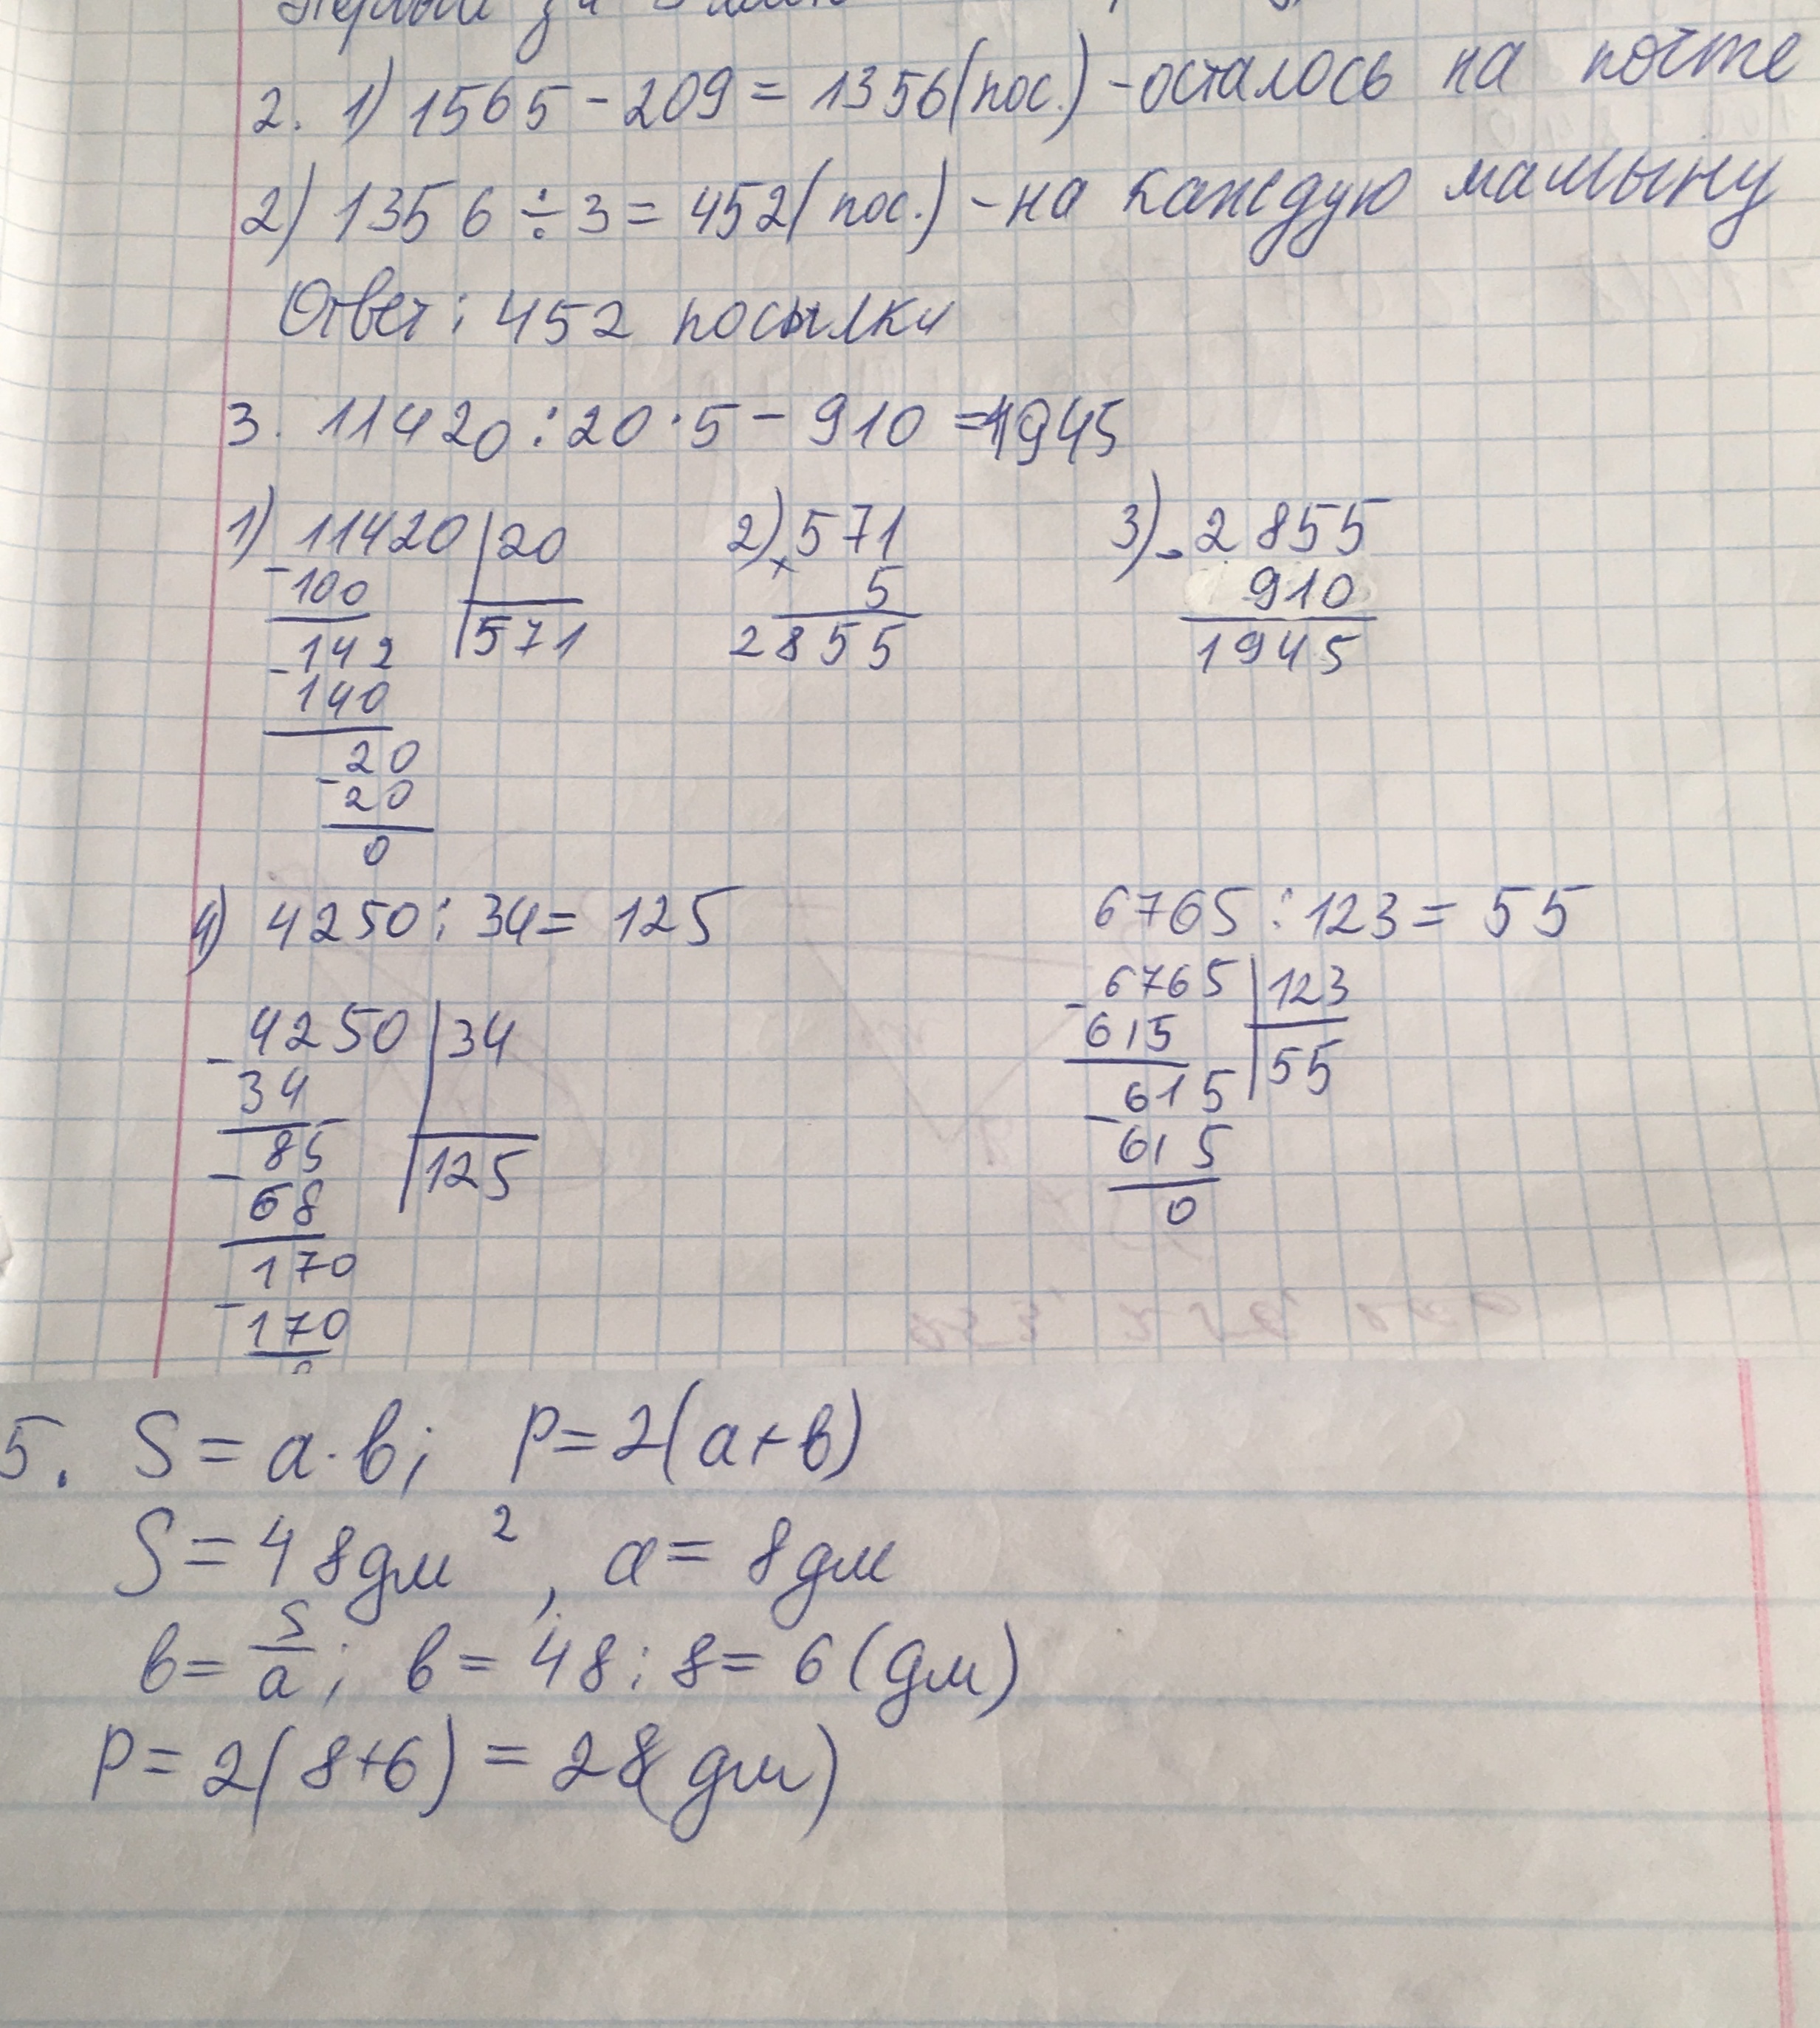 2. 1) 1565 - 209 = 1356 (пос.) - осталось на почте
2) 1356 ÷ 3 = 452 (пос.) - на каждую машыну
Ответ: 452 посылки
3. 11420 : 20 · 5 - 910 = 1945
1) 11420 | 20 2) 571 3) - 2855
- 100 571 × 5 910
- 142 2855 1945
140
- 20
20
0
4) 4250 : 34 = 125 6765 : 123 = 55
- 4250 | 34 - 6765 | 123
34 125 615 55
- 85 - 615
68 615
170 0
- 170
0
5. S = a · b; P = 2(a + b)
S = 48 дм², a = 8 дм
b = S/a; b = 48 : 8 = 6 (дм)
P = 2(8+6) = 28 (дм)